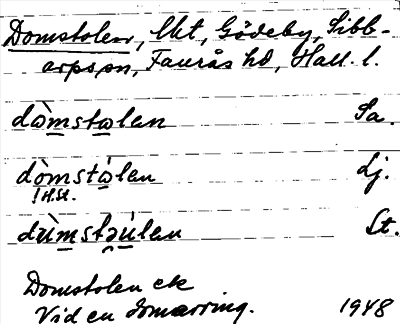 Domstolen, lkt, Gödeby, Sibb-
arps sn, Faurås hd, Hall. l.
dòmstωlen Sa.
dòmstὼlen Lj.
! H.St.
dùmstɔúlen St.
Domstolen ek
Vid en domarring. 1948